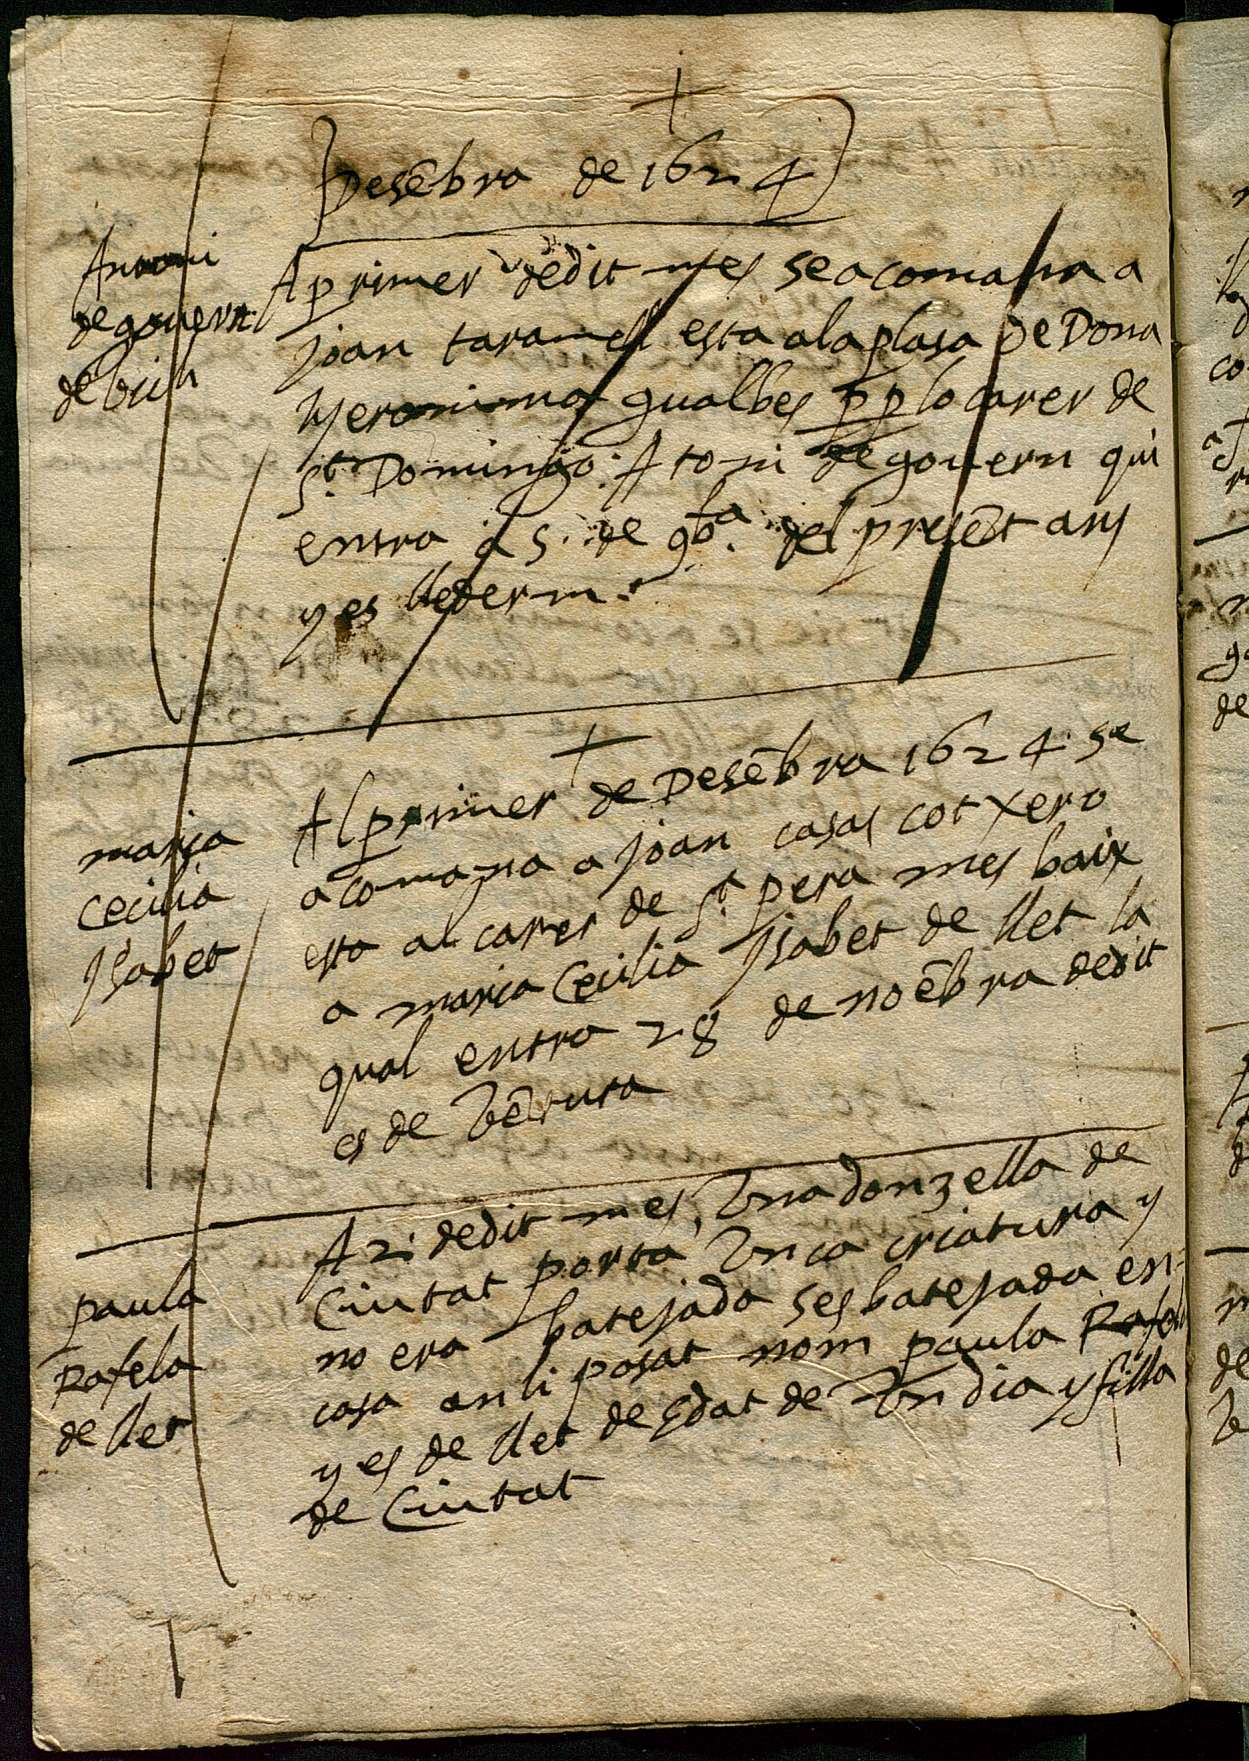 Desēbra de 1624
Antoni
de govern
de bill
A primer dedit mes se acomana a
Joan taramell esta ala plasa de Dona
Hyeronima gualbes pp lo carer de
St. Domingo: Atoni de govern qui
entra a 5. de 9bra. del presēt any
y es lledesm.
maria
Cecilia
Ysabet
Al primer de Desēbra 1624 se
acomana a joan casas cotxero
esta al carer de St. pera mes baix
a maria Cecilia Ysabet de llet la
qual entra 28 de noēbra dedit
es de
paula
Rafela
de llet
A 2. dedit mes, Una donzella de
Ciutat porta Una criatura y
no era batejada ses batejada en-
casa an li posat nom paula Rafela
y es de llet de Edat de Un dia y filla
de Ciutat